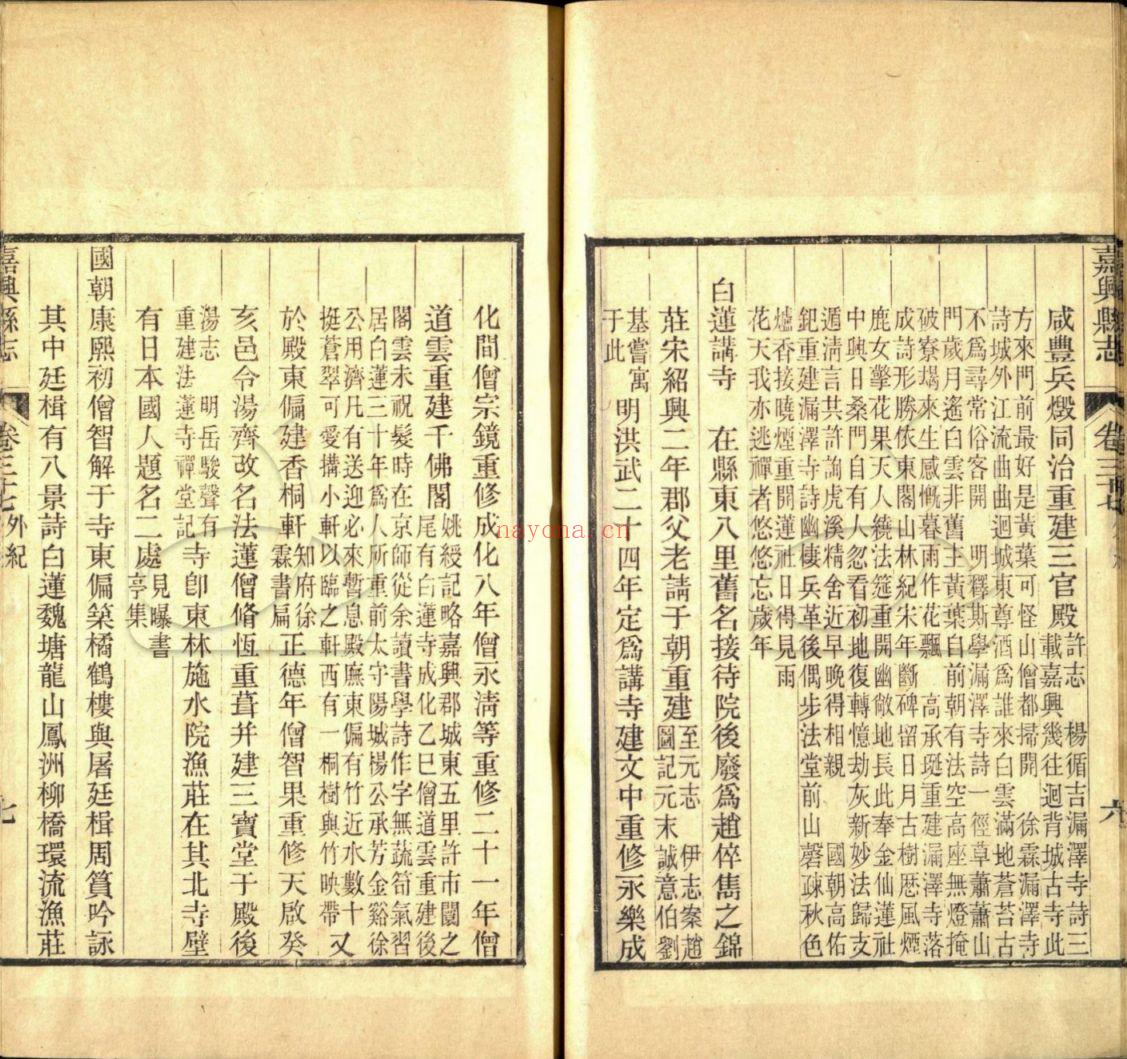 嘉興縣志
卷三十七
六
咸豐兵燬同治重建三官殿
許志　楊循吉漏澤寺詩三
載嘉興幾往迴背城古寺此
方來門前最好是黃葉可怪山僧都掃開　徐霖漏澤寺
詩城外江流曲曲迴城東尊酒爲誰來白雲滿地蒼苔古
不爲尋常俗客開　明釋斯學漏澤寺詩一徑草蕭蕭山
門歲月遙白雲非舊主黃葉自前朝有法空高座無燈掩
破寮堨來生感慨暮雨作花飄　高承埏重建漏澤寺落
成詩形勝依東閣山林紀宋年斷碑留日月古樹歷風煙
鹿女擎花果天人繞法筵重開幽敞地長此奉金仙蓮社
中興日桑門自有人忽看初地復轉憶劫灰新妙法歸支
遁清言共許詢虎溪精舍近早晚得相親　國朝高佑
釲重建漏澤寺詩幽棲兵革後偶步法堂前山磬疎秋色
爐香接曉煙重開蓮社日得見雨
花天我亦逃禪者悠悠忘歲年
白蓮講寺　在縣東八里舊名接待院後廢爲趙倅雋之錦
莊宋紹興二年郡父老請于朝重建
至元志　伊志案趙
圖記元末誠意伯劉
基嘗寓
于此
明洪武二十四年定爲講寺建文中重修永樂成
化間僧宗鏡重修成化八年僧永淸等重修二十一年僧
道雲重建千佛閣
姚綬記略嘉興郡城東五里許市闤之
尾有白蓮寺成化乙巳僧道雲重建後
閣雲未祝髮時在京師從余讀書學詩作字無蔬筍氣習
居白蓮三十年爲人所重前太守陽城楊公承芳金谿徐
公用濟凡有送迎必來暫息殿廡東偏有竹近水數十
挺蒼翠可愛搆小軒以臨之軒西有一桐樹與竹映帶
又
於殿東偏建香桐軒
知府徐
霖書扁
正德年僧智果重修天啟癸
亥邑令湯齊改名法蓮僧脩恆重葺并建三寶堂于殿後
湯志　明岳駿聲有
重建法蓮寺禪堂記
寺卽東林施水院漁莊在其北寺壁
有日本國人題名二處
見曝書
亭集
國朝康熙初僧智解于寺東偏築橘鶴樓與屠廷楫周篔吟詠
其中廷楫有八景詩白蓮魏塘龍山鳳洲柳橋環流漁莊
嘉興縣志
卷三十七
外紀
七
nayona.cn